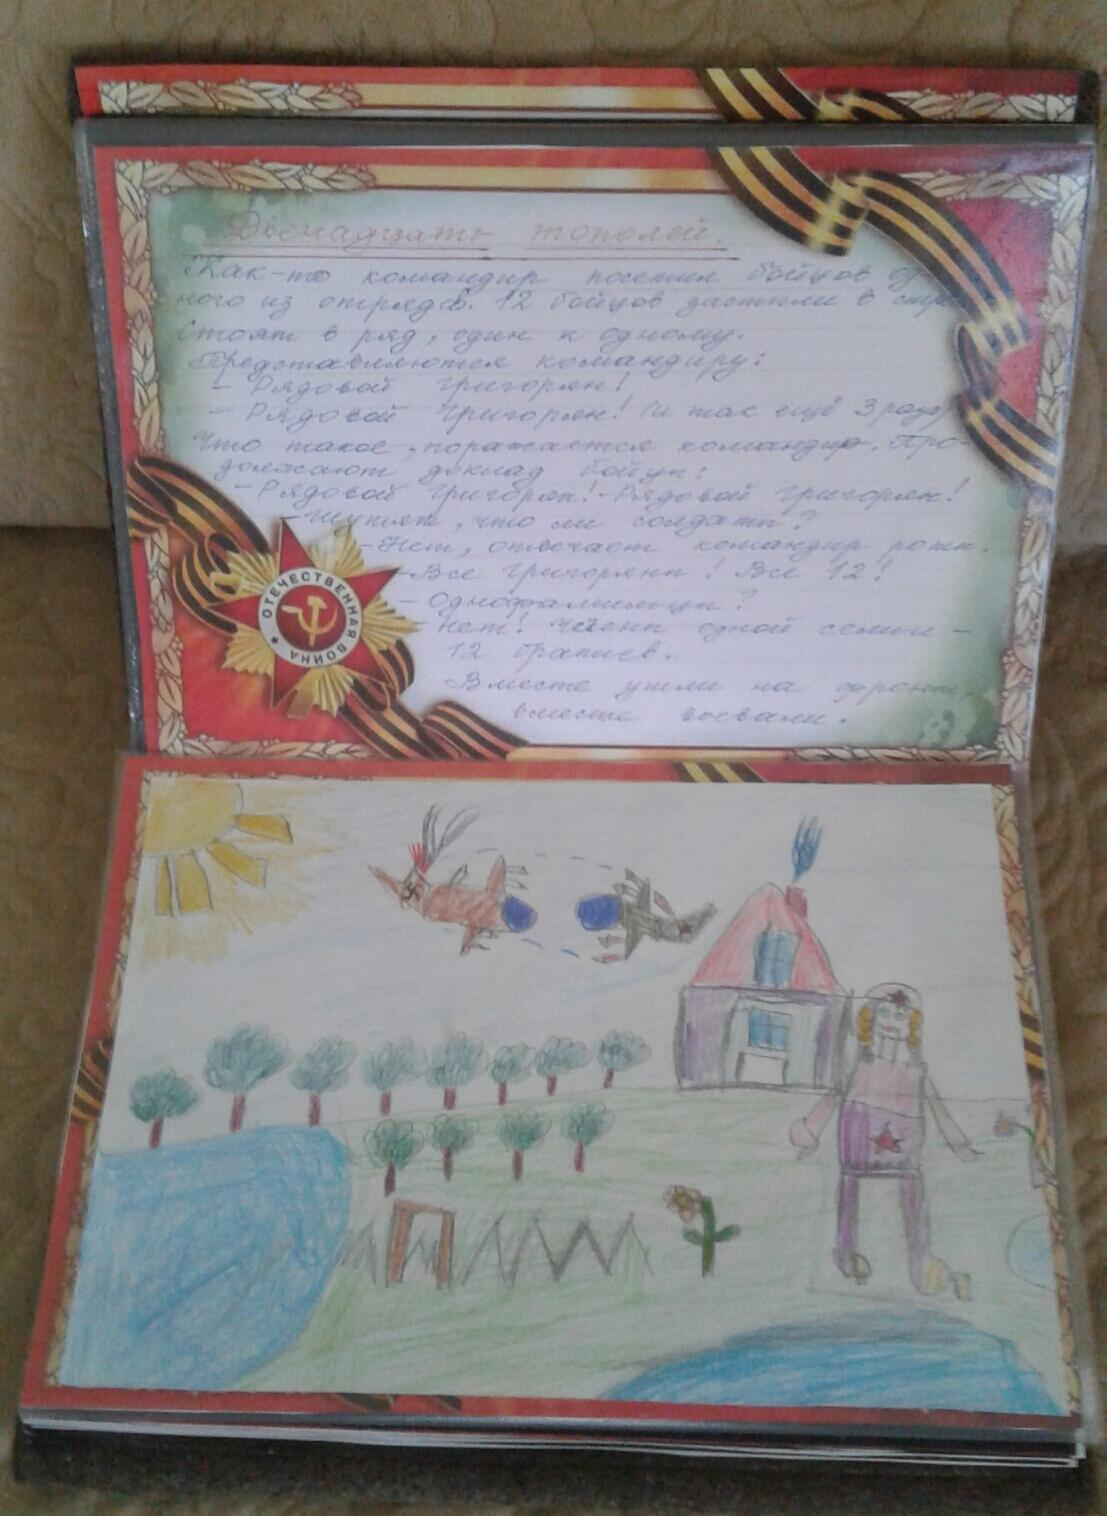 Двенадцать тополей.
Как-то командир посетил бойцов од-
ного из отрядов. 12 бойцов застыли в
Стоят в ряд, один к одному.
Представляются командиру:
- Рядовой Григорян!
- Рядовой Григорян! (и так ещё 3 раза)
Что такое, поражается командир. Про-
должают доклад бойцы:
- Рядовой Григорян! - Рядовой Григорян!
- Шутят, что ли солдаты?
- Нет, отвечает командир роты.
- Все Григоряны! Все 12!
- Однофамильцы?
- Нет! Члены одной семьи -
12 братьев.
Вместе ушли на фронт,
вместе воевали.
ОТЕЧЕСТВЕННАЯ ВОЙНА